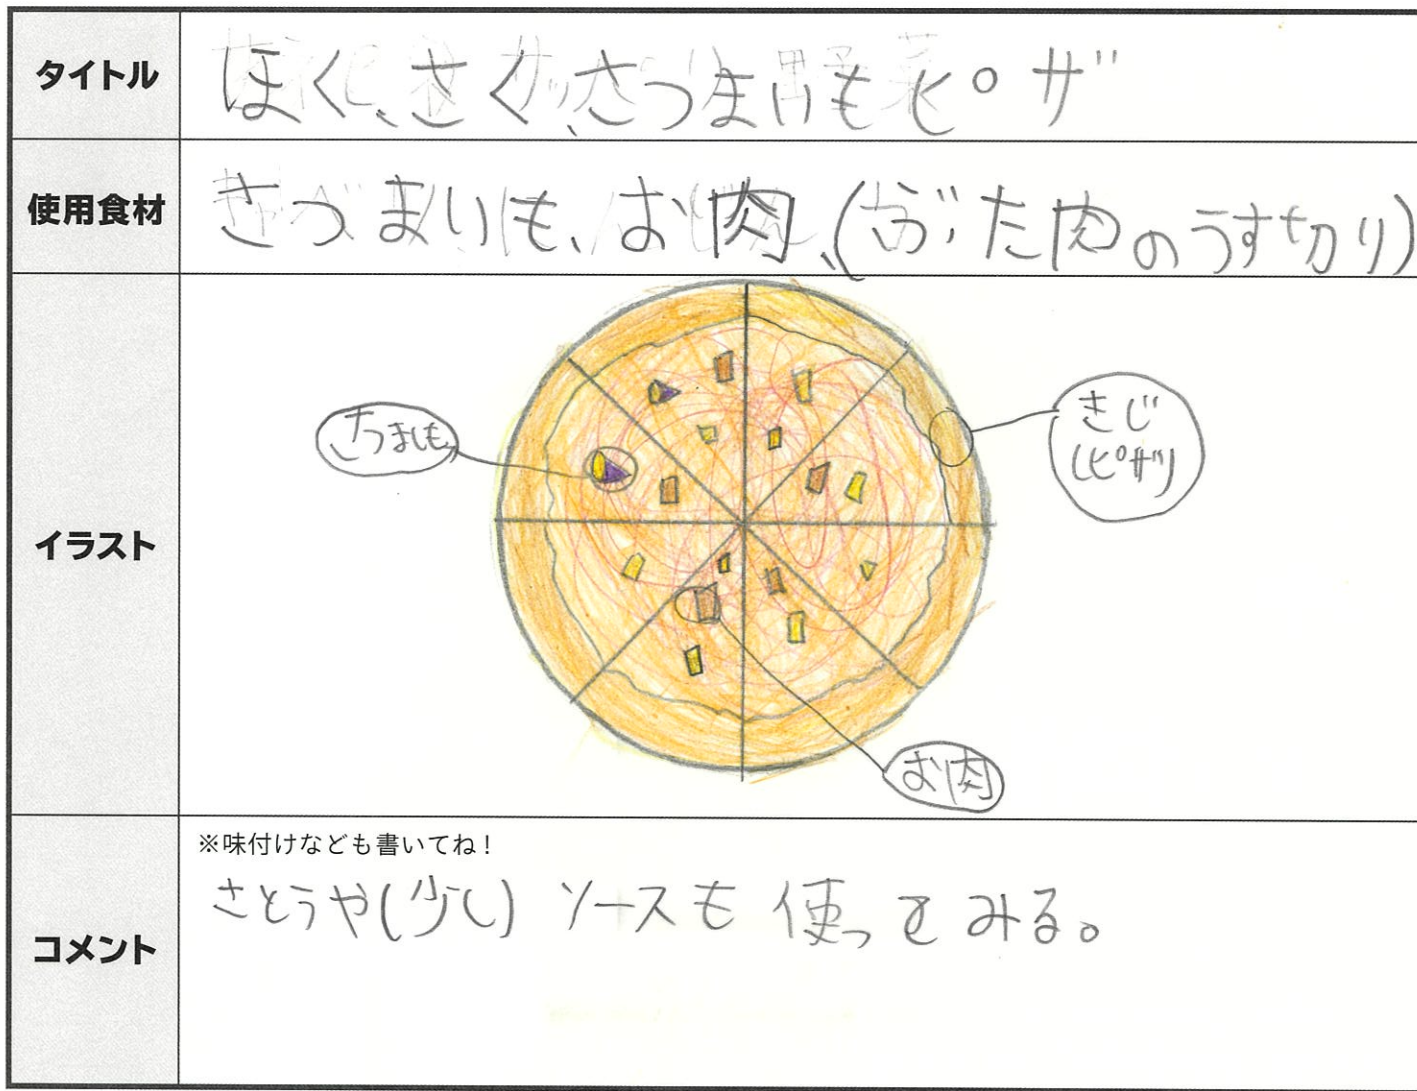 タイトル
ほく、さく、さつまいもピザ
使用食材
さつまいも、お肉、(ぶた肉のうす切り)
イラスト
さつまいも
きじ
(ピザ)
お肉
コメント
※味付けなども書いてね！
さとうや(少し)ソースも使ってみる。